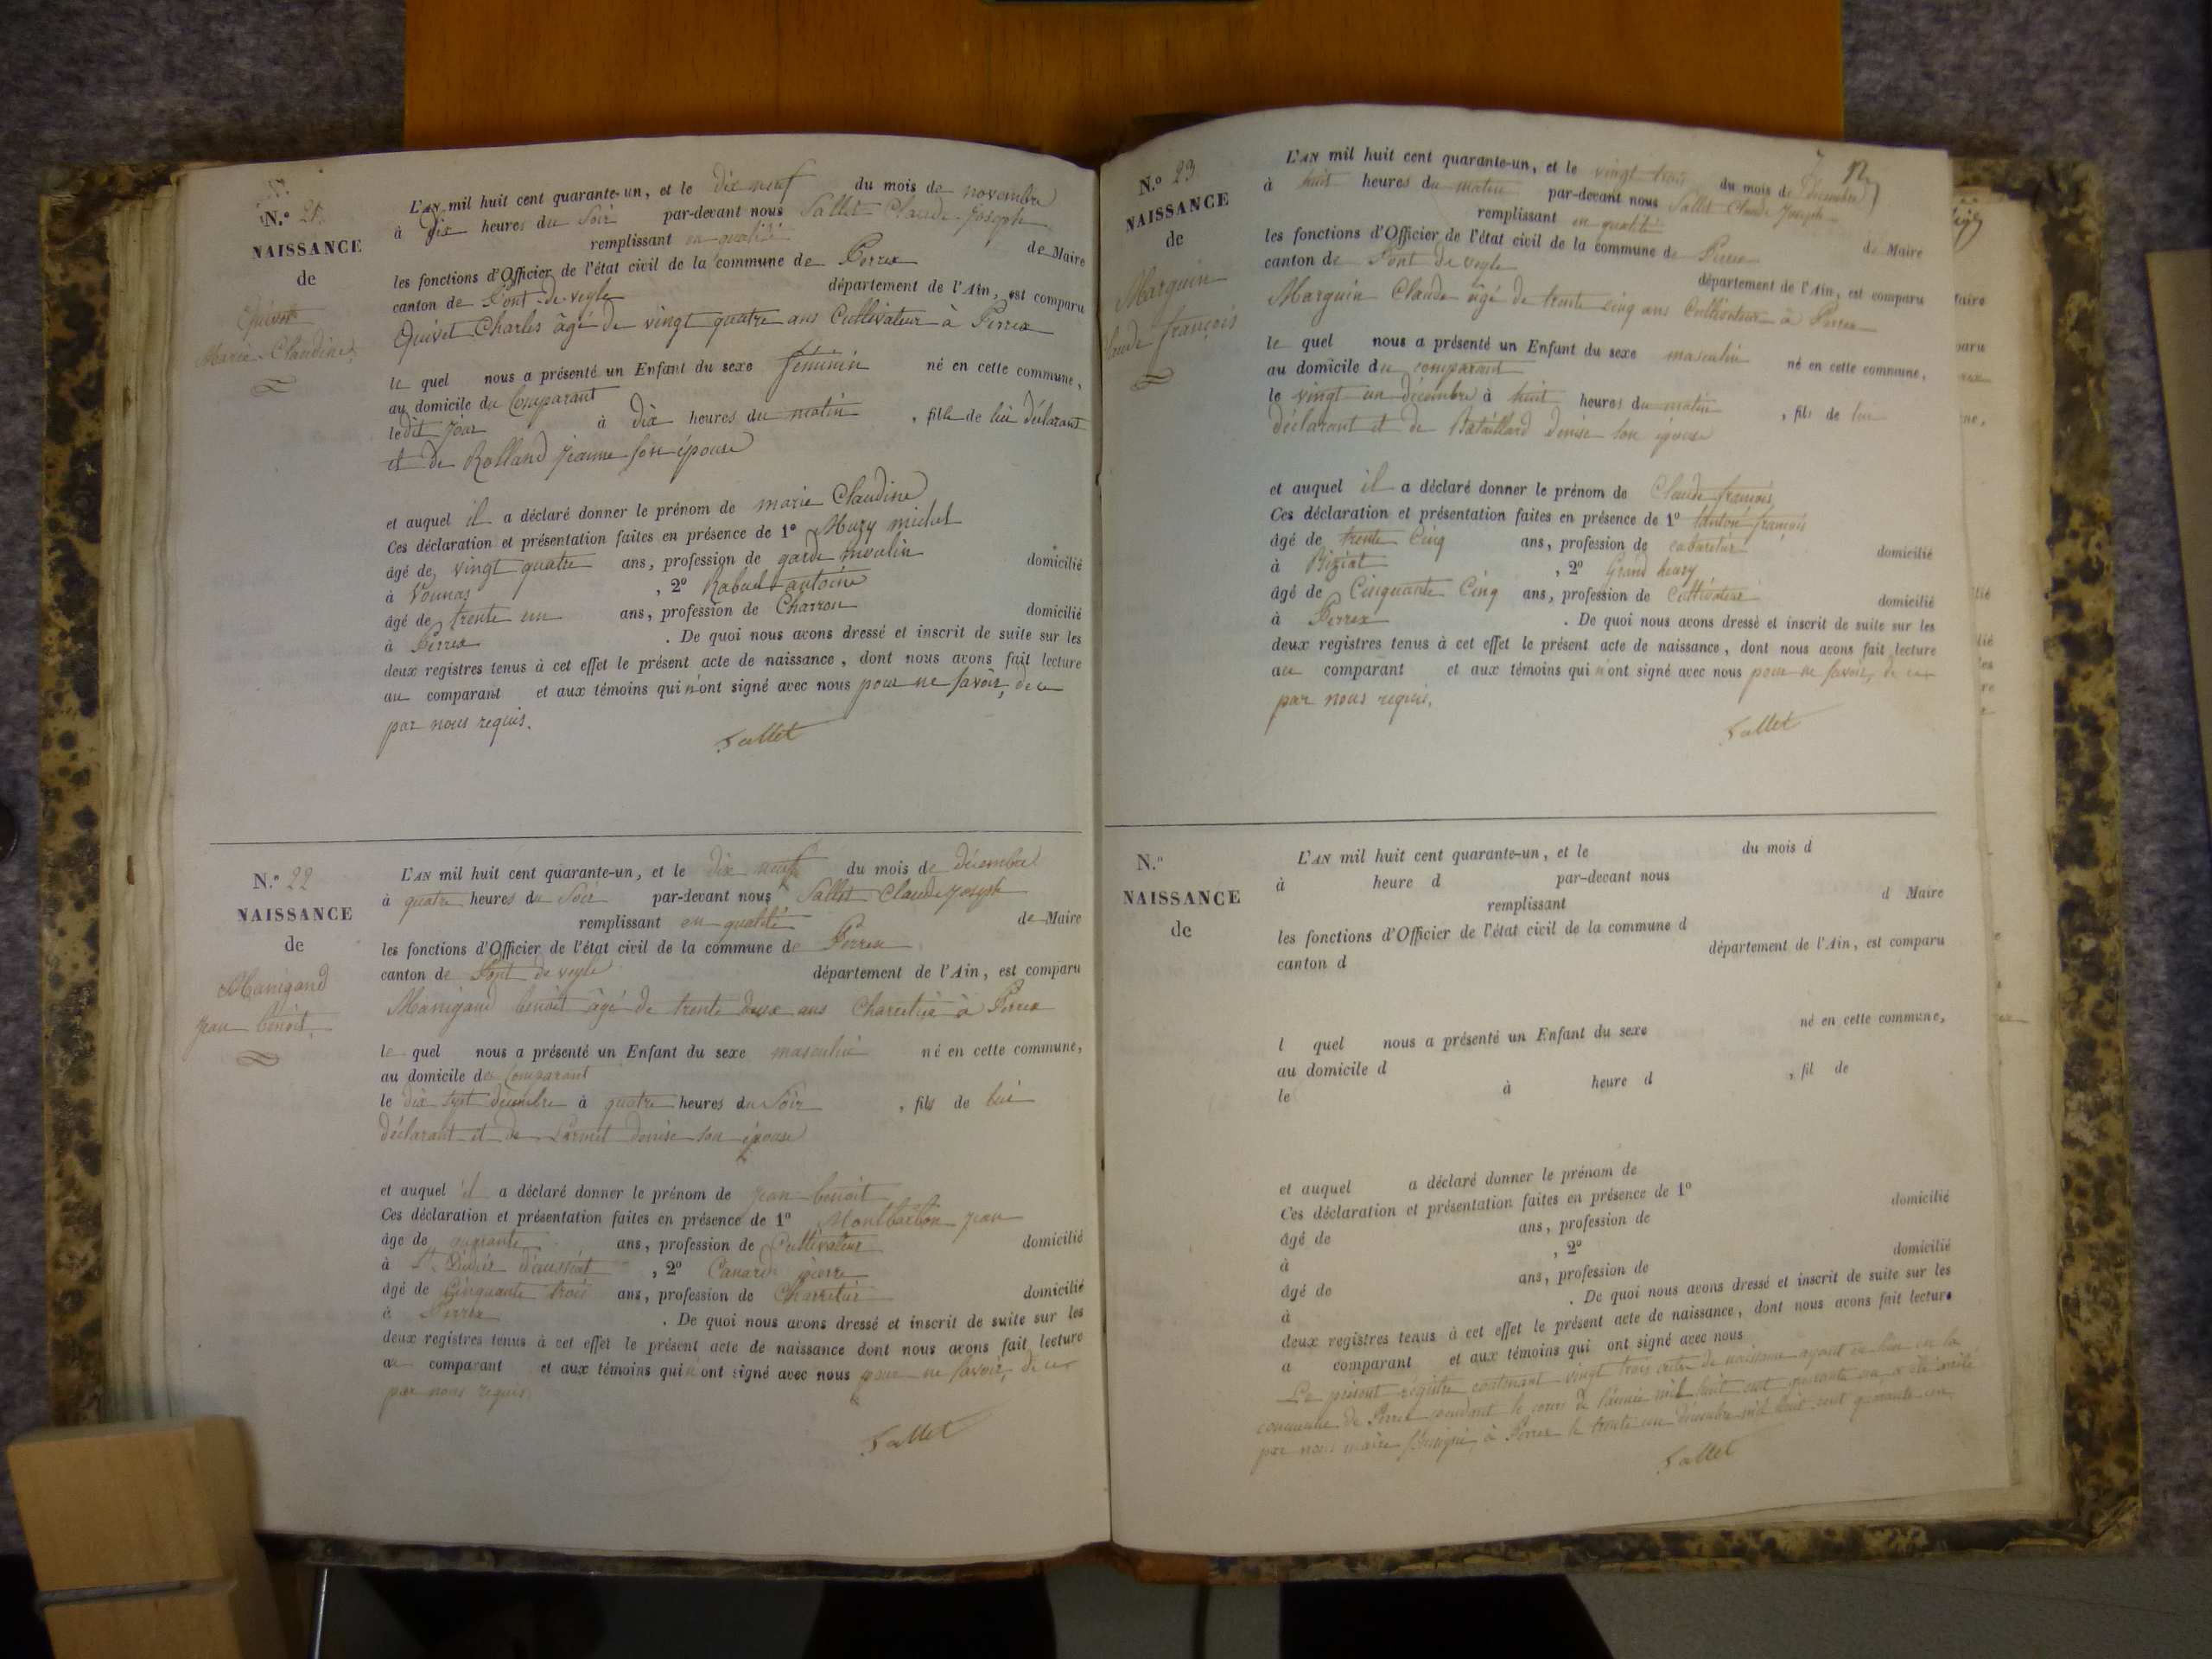 N.º 21.
NAISSANCE
de
Quivet
Marie Claudine
L'AN mil huit cent quarante-un, et le dix neuf du mois de novembre
à dix heures du Soir par-devant nous Sallet Claude Joseph
remplissant en qualité de Maire
les fonctions d'Officier de l'état civil de la commune de Perrex
canton de Pont-de-veyle département de l'Ain, est comparu
Quivet Charles âgé de vingt quatre ans Cultivateur à Perrex
le quel nous a présenté un Enfant du sexe féminin né en cette commune,
au domicile du Comparant
le dit jour à dix heures du matin, fille de lui déclarant
et de Rolland Jeanne son épouse
et auquel il a déclaré donner le prénom de marie Claudine
Ces déclaration et présentation faites en présence de 1º Mury michel
âgé de vingt quatre ans, profession de garde moulin domicilié
à Vonnas, 2º antoine
âgé de trente un ans, profession de Charron domicilié
à Perrex. De quoi nous avons dressé et inscrit de suite sur les
deux registres tenus à cet effet le présent acte de naissance, dont nous avons fait lecture
au comparant et aux témoins qui n'ont signé avec nous pour ne savoir, de ce
par nous requis.
Sallet
N.º 22
NAISSANCE
de
Manigand
Jean benoit
L'AN mil huit cent quarante-un, et le dix neuf du mois de décembre
à quatre heures du Soir par-devant nous Sallet Claude Joseph
remplissant en qualité de Maire
les fonctions d'Officier de l'état civil de la commune de Perrex
canton de Pont de veyle département de l'Ain, est comparu
Manigand benoit âgé de trente deux ans à Perrex
le quel nous a présenté un Enfant du sexe masculin né en cette commune,
au domicile du Comparant
le dix sept décembre à quatre heures du Soir, fils de lui
déclarant et de denise son épouse
et auquel il a déclaré donner le prénom de Jean benoit
Ces déclaration et présentation faites en présence de 1º Montbarbon Jean
âge de ans, profession de Cultivateur domicilié
à St Didier d'aussiat, 2º Canard pierre
âgé de Cinquante trois ans, profession de domicilié
à Perrex. De quoi nous avons dressé et inscrit de suite sur les
deux registres tenus à cet effet le présent acte de naissance dont nous avons fait lecture
au comparant et aux témoins qui n'ont signé avec nous pour ne savoir, de ce
par nous requis.
Sallet
N.º 23
NAISSANCE
de
Marguin
Claude françois
L'AN mil huit cent quarante-un, et le vingt trois du mois de Décembre
à huit heures du matin par-devant nous Sallet Claude Joseph
remplissant en qualité de Maire
les fonctions d'Officier de l'état civil de la commune de Perrex
canton de Pont de veyle département de l'Ain, est comparu
Marguin Claude âgé de trente cinq ans Cultivateur à Perrex
le quel nous a présenté un Enfant du sexe masculin né en cette commune,
au domicile du comparant
le vingt un décembre à huit heures du matin, fils de lui
déclarant et de Bataillard Denise son épouse
et auquel il a déclaré donner le prénom de Claude françois
Ces déclaration et présentation faites en présence de 1º françois
âgé de trente Cinq ans, profession de domicilié
à Biziat, 2º Grand
âgé de Cinquante Cinq ans, profession de Cultivateur domicilié
à Perrex. De quoi nous avons dressé et inscrit de suite sur les
deux registres tenus à cet effet le présent acte de naissance, dont nous avons fait lecture
au comparant et aux témoins qui n'ont signé avec nous pour ne savoir, de ce
par nous requis.
Sallet
N.º
NAISSANCE
de
L'AN mil huit cent quarante-un, et le du mois d
à heure d par-devant nous
remplissant d Maire
les fonctions d'Officier de l'état civil de la commune d
canton d département de l'Ain, est comparu
l quel nous a présenté un Enfant du sexe né en cette commune,
au domicile d
le à heure d, fil de
et auquel a déclaré donner le prénom de
Ces déclaration et présentation faites en présence de 1º
âgé de ans, profession de domicilié
à, 2º
âgé de ans, profession de domicilié
à. De quoi nous avons dressé et inscrit de suite sur les
deux registres tenus à cet effet le présent acte de naissance, dont nous avons fait lecture
a comparant et aux témoins qui ont signé avec nous
Le présent registre contenant vingt trois actes de naissance ayant eu lieu en la
commune de Perrex pendant le cours de l'année mil huit cent quarante un a été
par nous maire soussigné, à Perrex le trente un décembre mil huit cent quarante un
Sallet